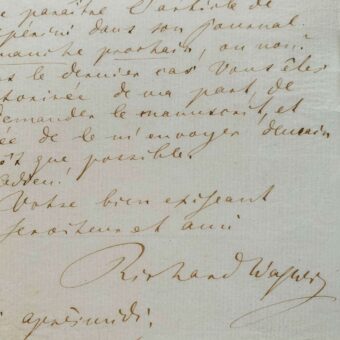 paraître l'article de
spérini dans son journal
manche prochain, ou non?
s le dernier cas vous êtes
torisée de ma part, de
emander le manuscrit, et
ée de le m'envoyer demain
ôt que possible.
adieu!
Votre bien exigeant
serviteur et ami
Richard Wagner
après midi.